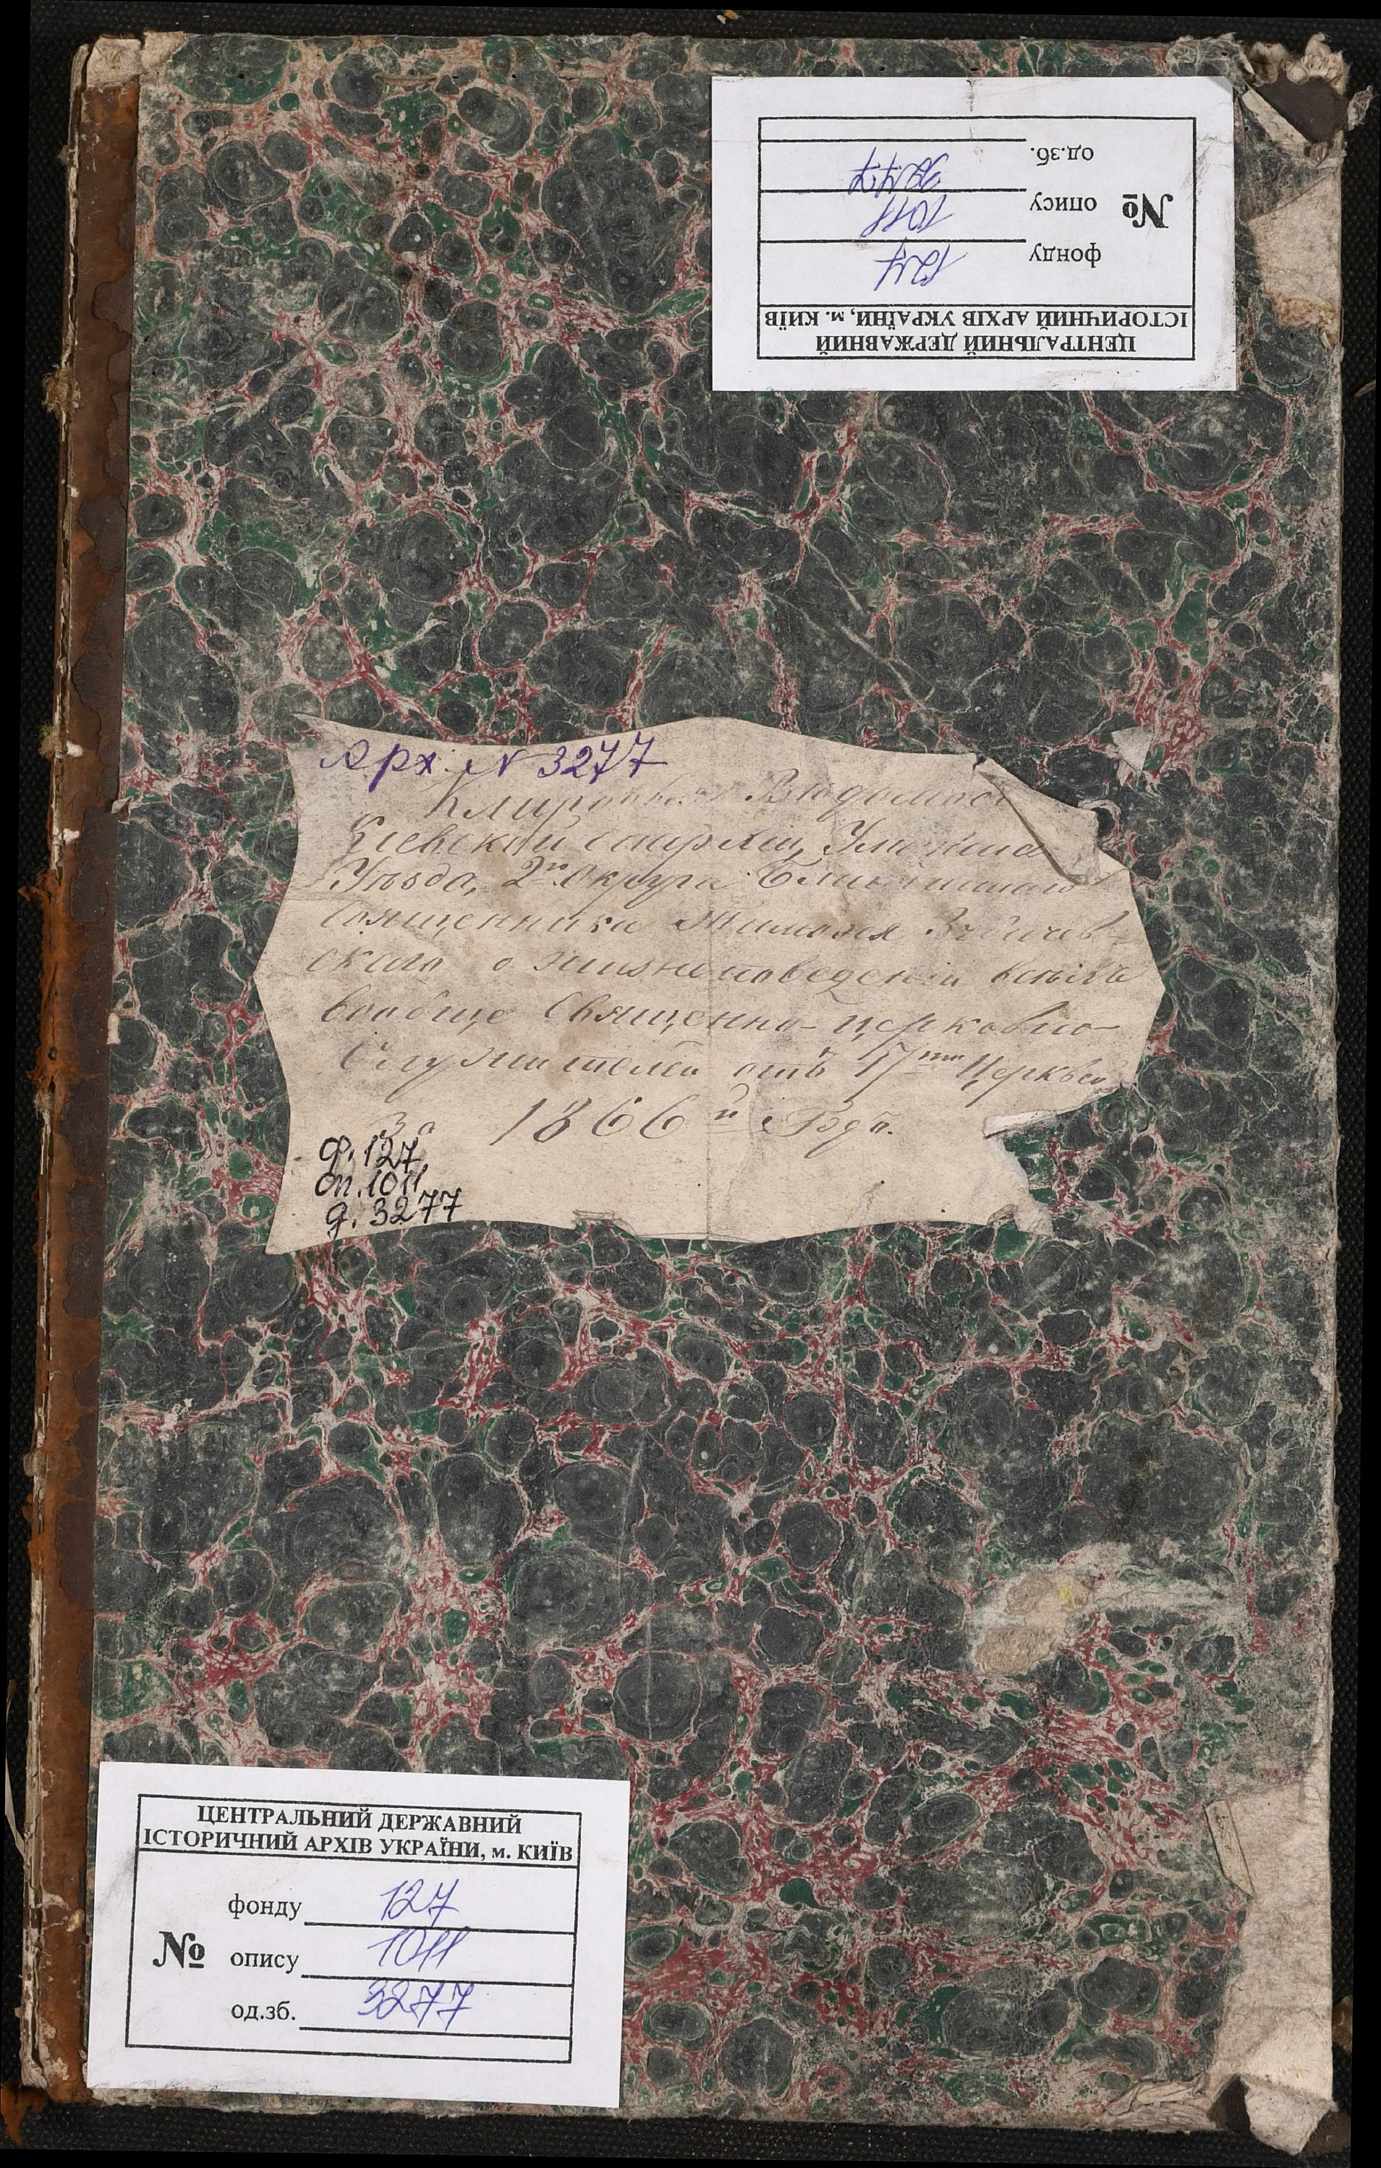 ЦЕНТРАЛЬНИЙ ДЕРЖАВНИЙ
ІСТОРИЧНИЙ АРХІВ УКРАЇНИ, м. КИЇВ
фонду 127
№ опису 1011
од.зб. 3277
Арх. N 3277
Клировая Ведомость
Кіевской Епархіи, Уманскаго
Уезда, 2го Округа Благочиннаго
Священника
скаго о жизнеповеденіи всехъ
вообще Священно-церковно-
служителей отъ 17ти Церквей
За 1866й Годъ.
ф. 127
оп. 1011
д. 3277
ЦЕНТРАЛЬНИЙ ДЕРЖАВНИЙ
ІСТОРИЧНИЙ АРХІВ УКРАЇНИ, м. КИЇВ
фонду 127
№ опису 1011
од.зб. 3277